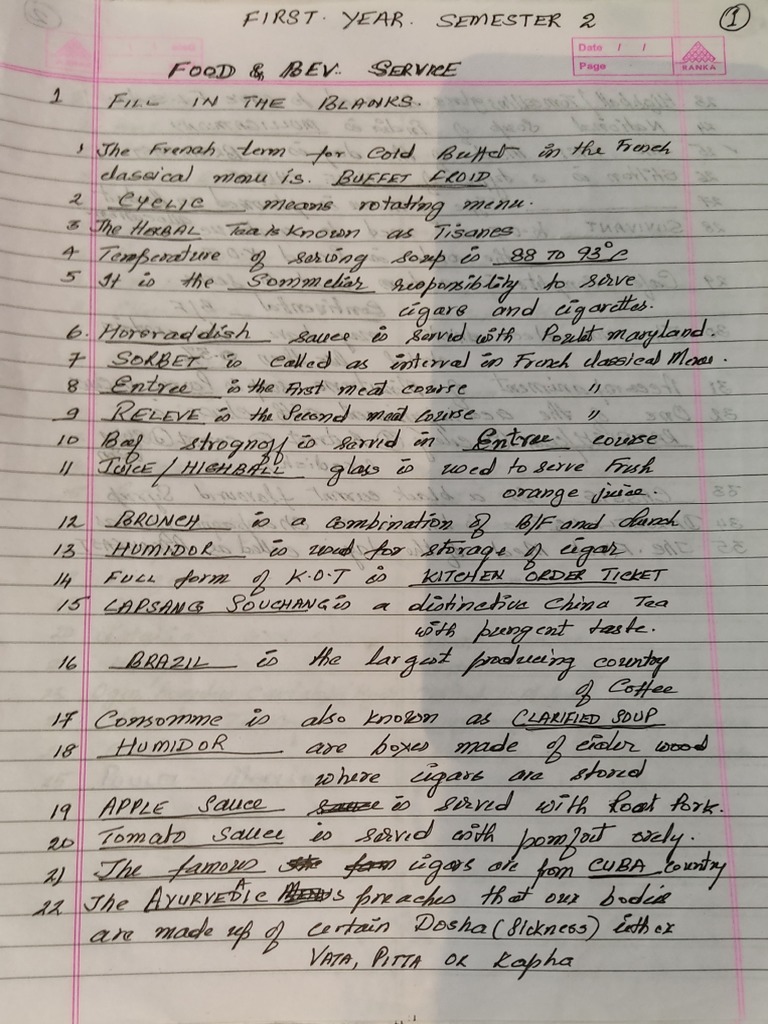 FIRST. YEAR. SEMESTER 2 ①
Date / /
Page
RANKA
FOOD & BEV. SERVICE
1 FILL IN THE BLANKS.
1 The French term for Cold Buffet in the French
classical menu is. BUFFET FROID
2 CYCLIC means rotating menu.
3 The HERBAL Tea is known as Tisanes
4 Temperature of serving soup is 88 TO 93°C
5 It is the Sommelier responsiblity to serve
cigars and cigarettes.
6. Horsraddish sauce is served with Poulet maryland.
7 SORBET is called as interval in French classical Menu.
8 Entree is the First meat course "
9 RELEVE is the Second meat course "
10 Beef strognoff is served in Entree course
11 JUICE / HIGHBALL glass is used to serve Fresh
orange juice.
12 BRUNCH is a combination of B/F and Lunch
13 HUMIDOR is used for storage of cigar
14 FULL form of K.O.T is KITCHEN ORDER TICKET
15 LAPSANG SOUCHANG is a distinctive China Tea
with pungent taste.
16 BRAZIL is the largest producing country
of Coffee
17 Consomme is also known as CLARIFIED SOUP
18 HUMIDOR are boxes made of cider wood
where cigars are stored
19 APPLE Sauce is served with Roast Pork.
20 Tomato Sauce is served with pomfort orely.
21 The famous cigars are from CUBA country
22 The AYURVEDIC preaches that our bodies
are made up of certain Dosha (Sickness) either
VATA, PITTA OR Kapha